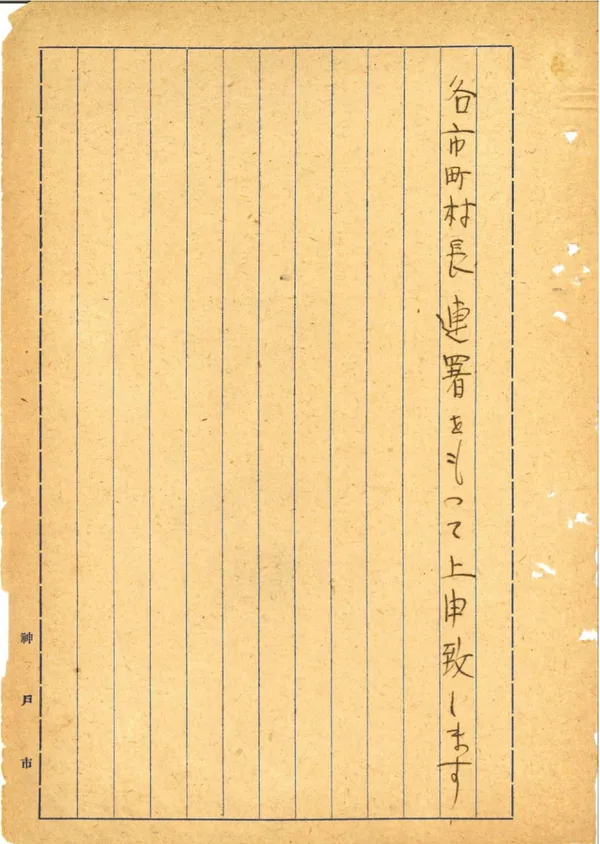 各市町村長連署をもって上申致します
神戸市